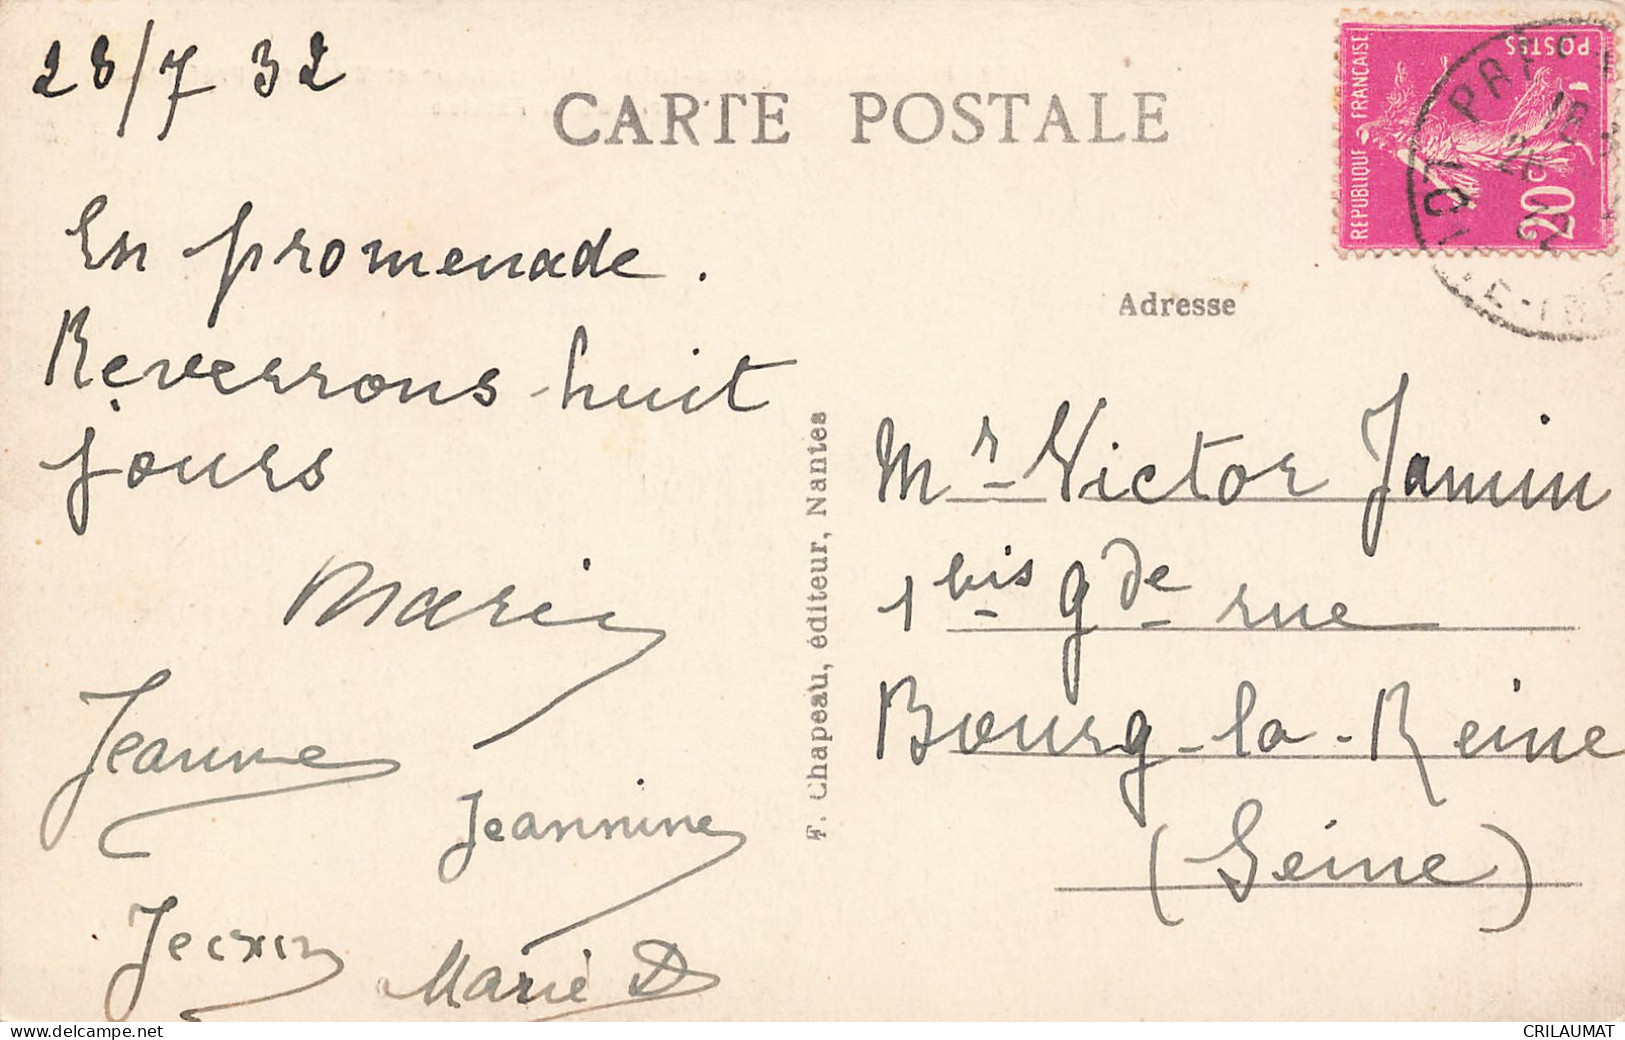 28/7 32
CARTE POSTALE
En promenade.
Reverrons huit
jours
Marie
Jeanne
Jeannine
Marie D
F. Chapeau, éditeur, Nantes
REPUBLIQUE FRANCAISE
POSTES
20c
Adresse
Mr Victor Jamin
1 bis gde rue
Bourg-la-Reine
(Seine)
https://www.delcampe.net
CRILAUMAT